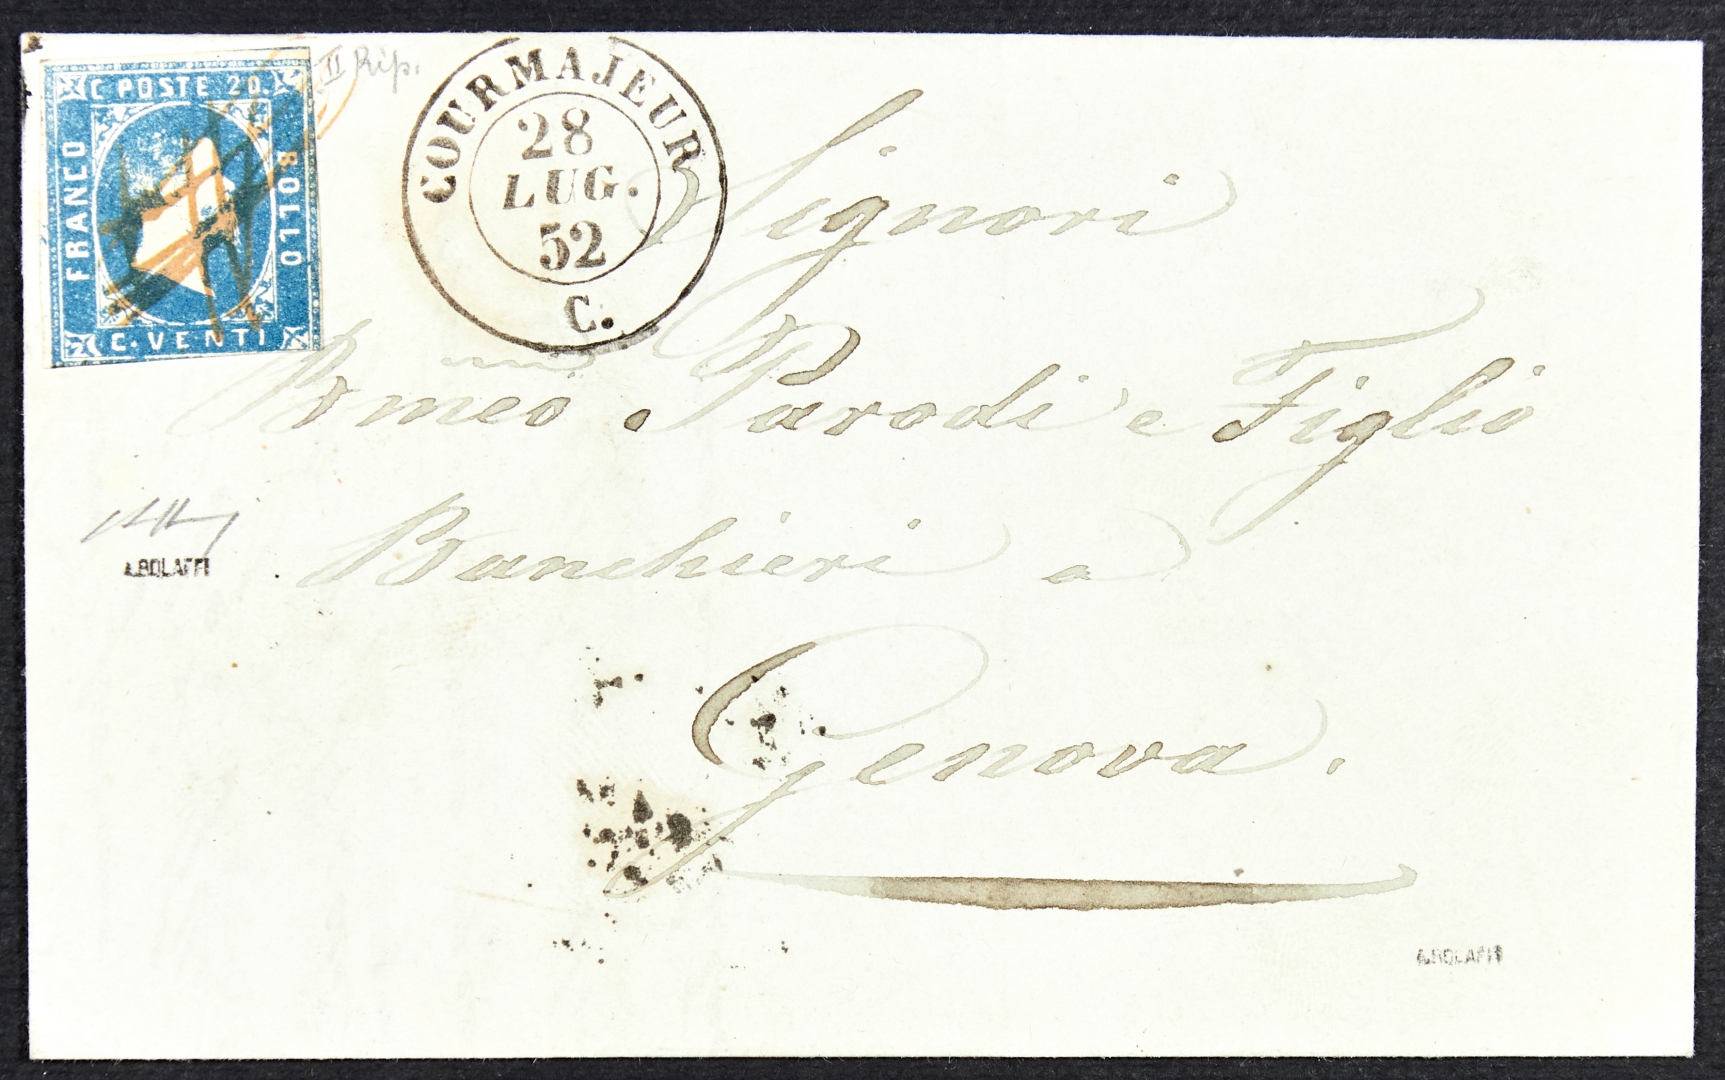 C. POSTE 20.
FRANCO
BOLLO
C. VENTI
II Rip.
COURMAJEUR
28
LUG.
52
C.
Signori
Bmeo. Parodi e Figlio
Banchieri a
Genova.
A.BOLAFFI
A.BOLAFFI